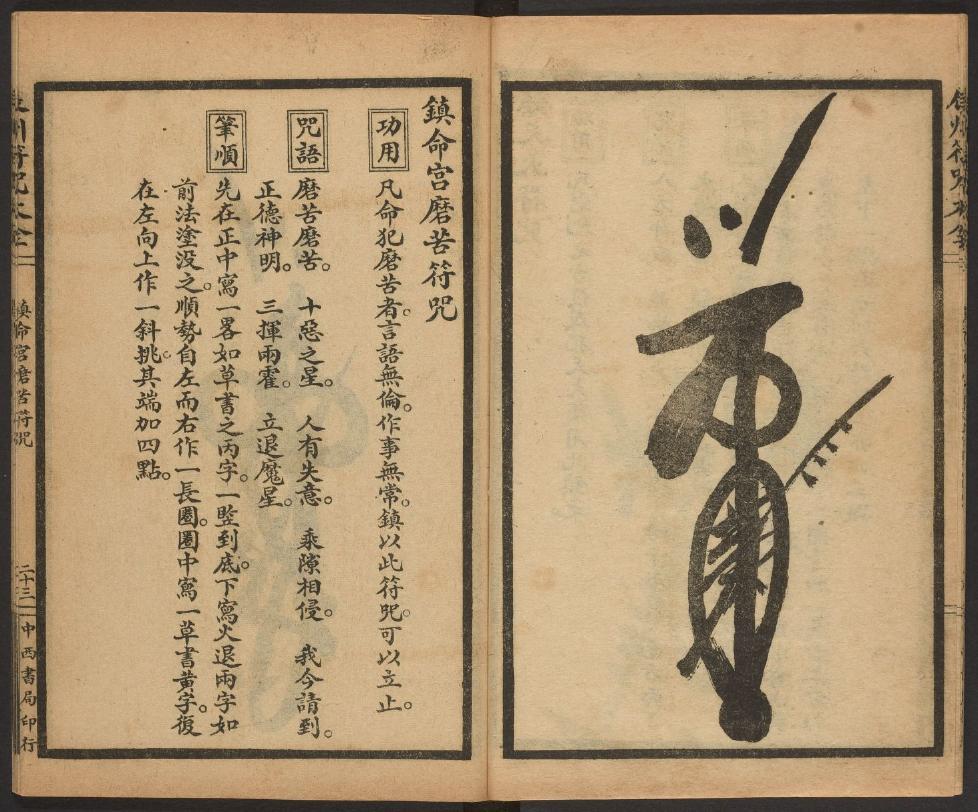 鎮命宮磨苦符咒
功用
凡命犯磨苦者。言語無倫。作事無常。鎮以此符咒。可以立止。
咒語
磨苦磨苦。十惡之星。人有失意。乘隙相侵。我今請到。
正德神明。三揮兩霍。立退魔星。
筆順
先在正中寫一畧如草書之丙字。一竪到底。下寫火退兩字如
前法塗没之。順勢自左而右作一長圈。圈中寫一草書黃字。復
在左向上作一斜挑。其端加四點。
鎮命宮磨苦符咒
二十三
中西書局印行